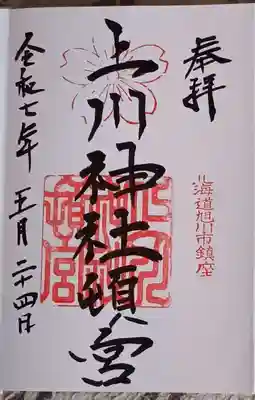 奉拝
北海道旭川市鎮座
上川神社頓宮
令和七年 五月 二十四日